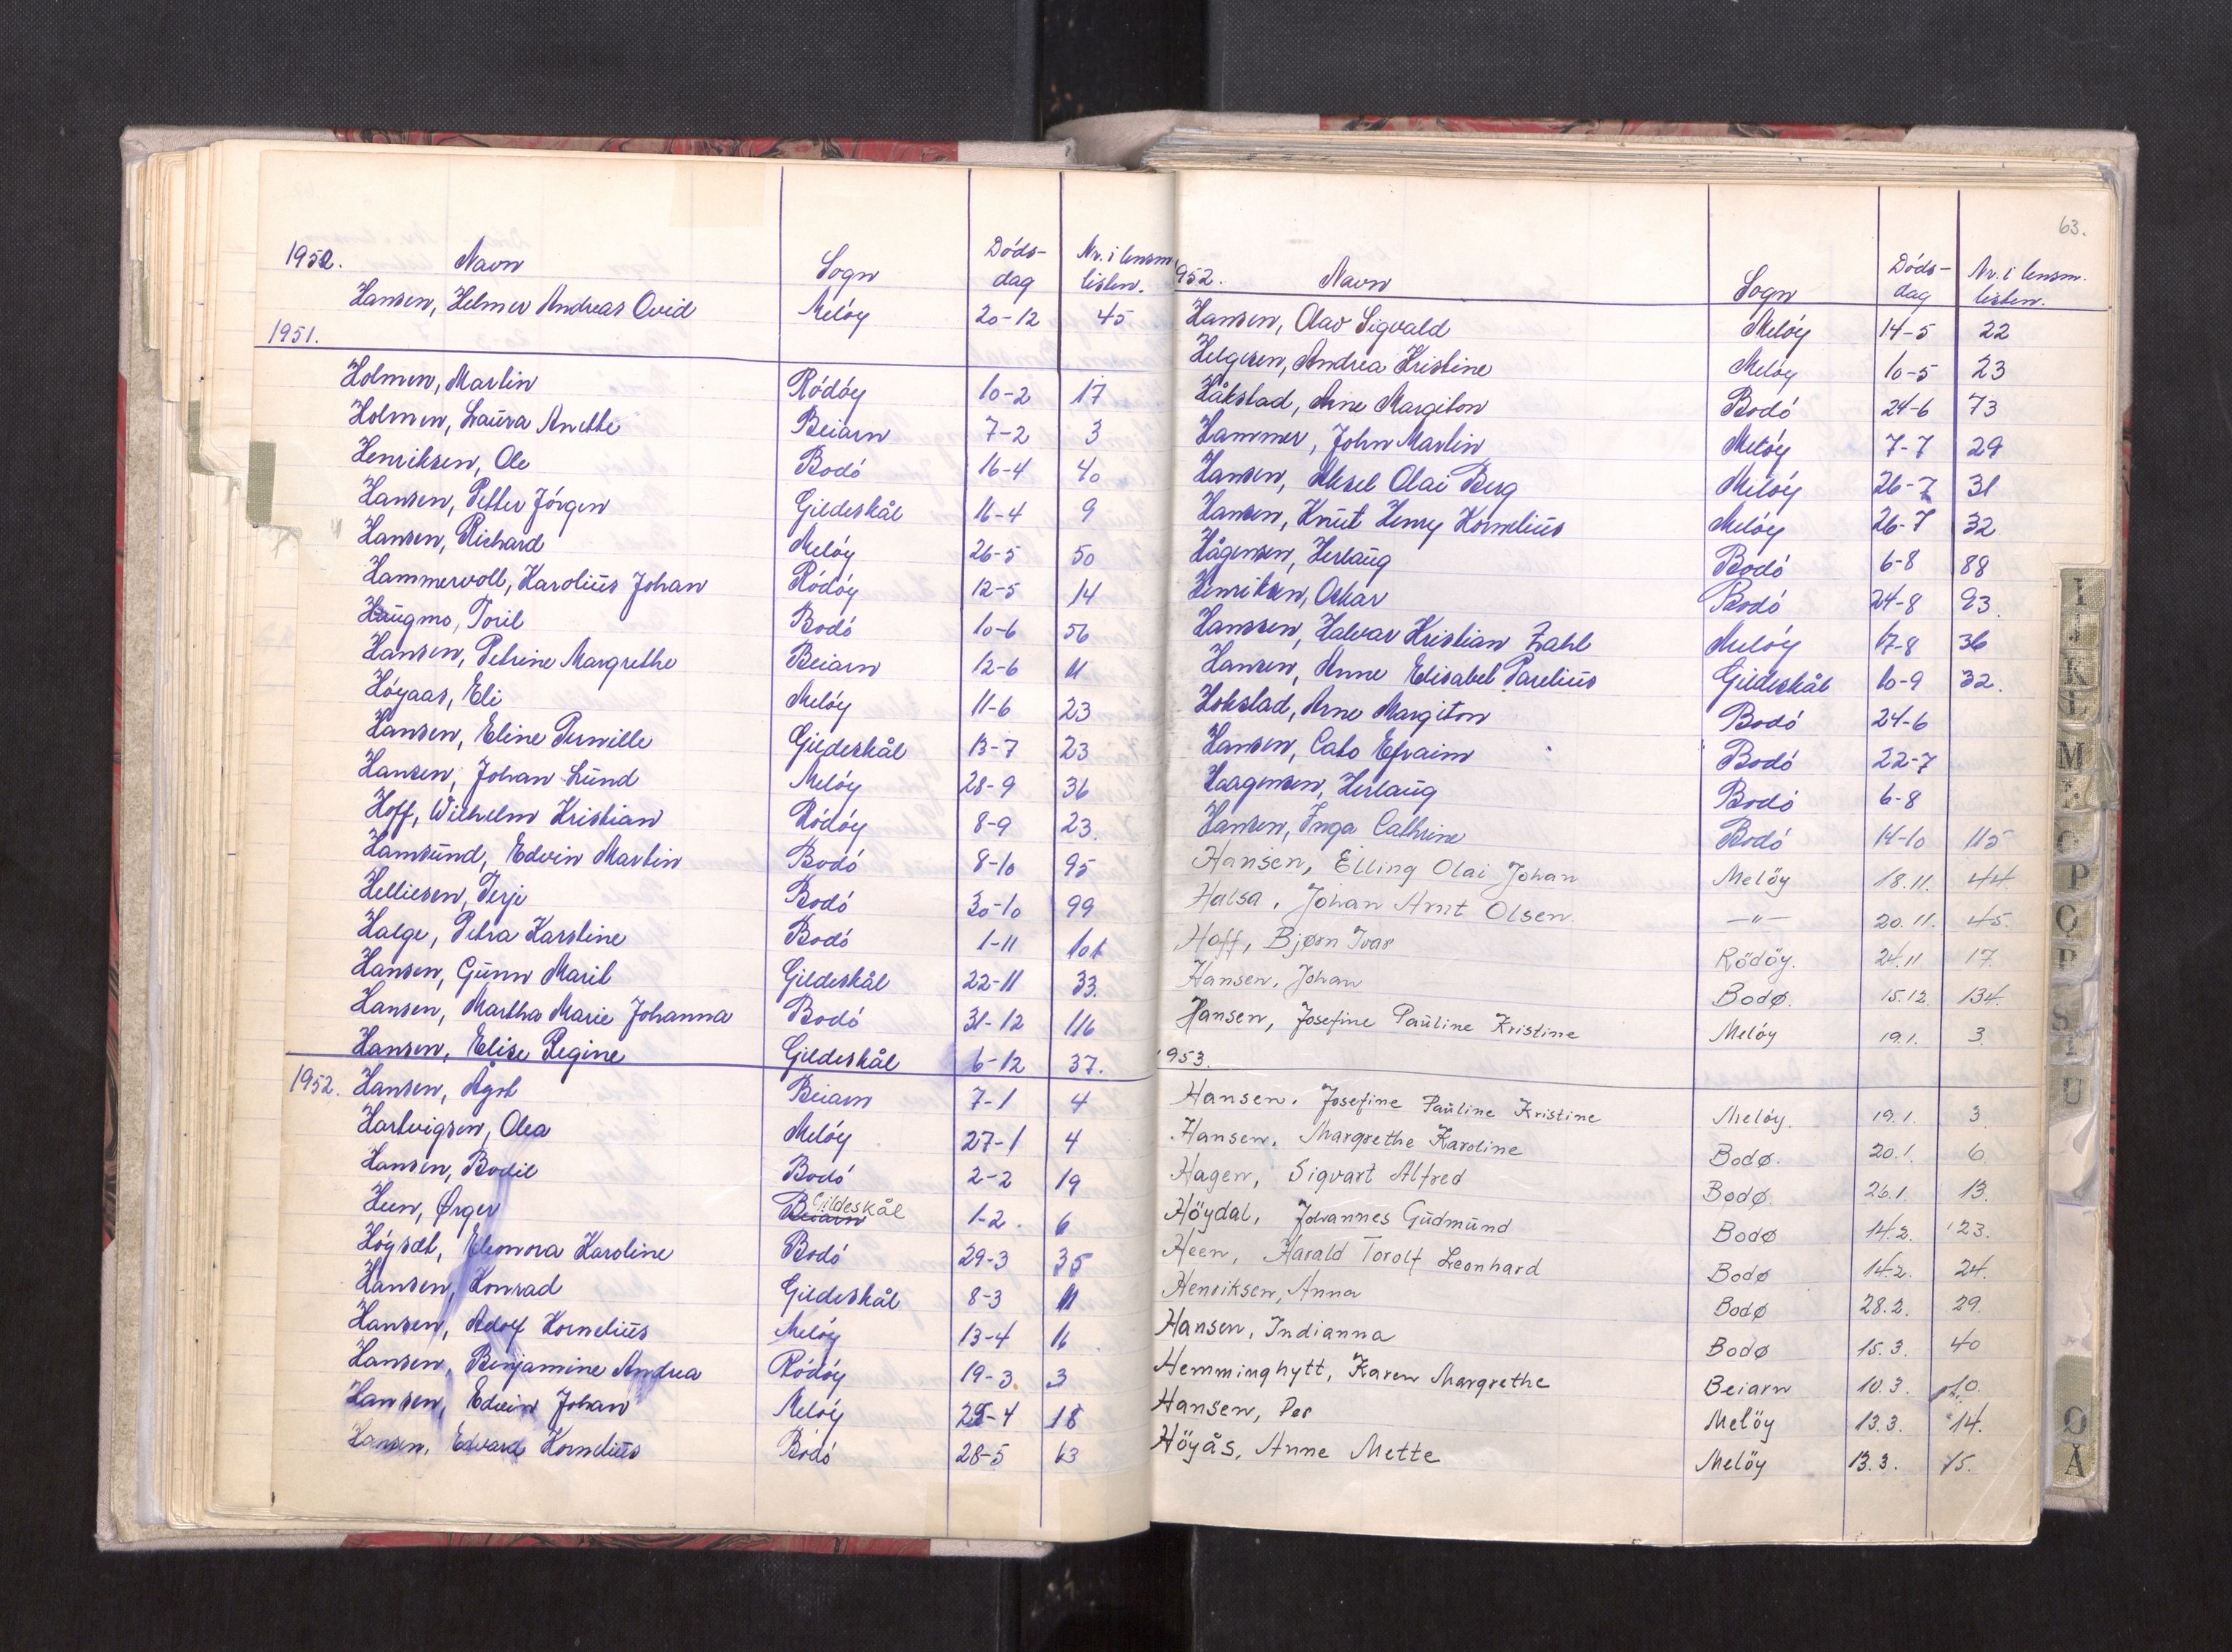 1952. Navn Sogn Döds- dag Nr. i lensm. listen.
Hansen, Helmer Andreas Ovid Melöy 20-12 45
1951.
Holmen, Martin Rödöy 10-2 17
Holmen, Laura Anette Beiarn 7-2 3
Henriksen, Ole Bodö 16-4 40
Hansen, Petter Jörgen Gildeskål 16-4 9
Hansen, Richard Melöy 26-5 50
Hammervoll, Karolius Johan Rödöy 12-5 14
Haugmo, Toril Bodö 10-6 56
Hansen, Petrine Margrethe Beiarn 12-6 11
Höyaas, Eli Melöy 11-6 23
Hansen, Eline Pernille Gildeskål 13-7 23
Hansen, Johan Lund Melöy 28-9 36
Hoff, Wilhelm Kristian Rödöy 8-9 23.
Hamsund, Edvin Martin Bodö 8-10 95
Helliesen, Terje Bodö 30-10 99
Halge, Petra Karstine Bodö 1-11 101
Hansen, Gunn Marit Gildeskål 22-11 33.
Hansen, Martha Marie Johanna Bodö 31-12 116
Hansen, Elise Regine Gildeskål 6-12 37.
1952. Hansen, Ågot Beiarn 7-1 4
Hartvigsen, Olea Melöy 27-1 4
Hansen, Bodil Bodö 2-2 19
Heen, Ørger Beiarn Gildeskål 1-2. 6
Högsæt, Eleonora Karoline Bodö 29-3 35
Hansen, Konrad Gildeskål 8-3 11
Hansen, Adolf Kornelius Melöy 13-4 16
Hansen, Benjamine Andrea Rödöy 19-3 3
Hansen, Edvin Johan Melöy 25-4 18
Hansen, Edvard Kornelius Bodö 28-5 63
63.
1952. Navn Sogn Döds- dag Nr. i lensm. listen.
Hansen, Olav Sigvald Melöy 14-5 22
Helgesen, Andrea Kristine Melöy 10-5 23
Håkstad, Arne Margiton Bodö 24-6 73
Hammer, John Martin Melöy 7-7 29
Hansen, Aksel Olai Berg Melöy 26-7 31
Hansen, Knut Henry Kornelius Melöy 26-7 32
Hågensen, Herlaug Bodö 6-8 88
Henriksen, Oskar Bodö 24-8 93
Hanssen, Halvar Kristian Zahl Melöy 17-8 36
Hansen, Anne Elisabet Parelius Gildeskål 10-9 32.
Hokstad, Arne Margiton Bodö 24-6
Hansen, Cato Efraim Bodö 22-7
Haagensen, Herlaug Bodö 6-8
Hansen, Inga Cathrine Bodö 14-10 115
Hansen, Elling Olai Johan Melöy 18.11. 44.
Halsa, Johan Arnt Olsen —"— 20.11. 45.
Hoff, Bjørn Ivar Rödöy. 24.11 17.
Hansen, Johan Bodø. 15.12. 134.
Hansen, Josefine Pauline Kristine Melöy 19.1. 3.
1953.
Hansen, Josefine Pauline Kristine Melöy. 19.1. 3
Hansen, Margrethe Karoline Bodø. 20.1. 6
Hagen, Sigvart Alfred Bodø. 26.1. 13.
Höydal, Johannes Gudmund Bodø 14.2. 23.
Heen, Harald Torolf Leonhard Bodø 14.2. 24.
Henriksen, Anna Bodø 28.2. 29.
Hansen, Indianna Bodø 15.3. 40
Hemminghytt, Karen Margrethe Beiarn 10.3. 10.
Hansen, Per Melöy 13.3. 14.
Höyås, Anne Mette Melöy 13.3. 15.
I
J
K
L
M
O
P
Q
R
S
T
U
Ø
Å